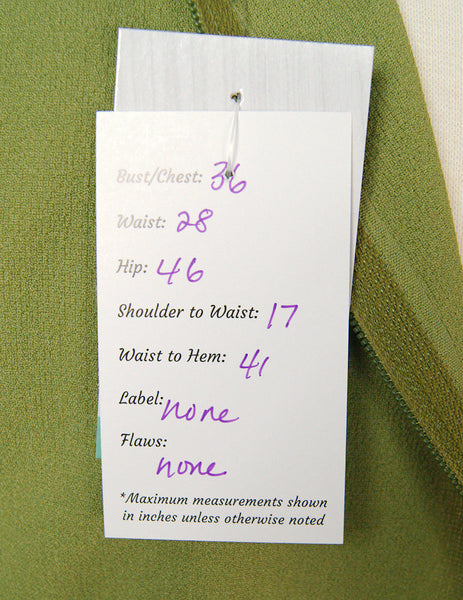 Bust/Chest: 36
Waist: 28
Hip: 46
Shoulder to Waist: 17
Waist to Hem: 41
Label: none
Flaws:
none
*Maximum measurements shown
in inches unless otherwise noted